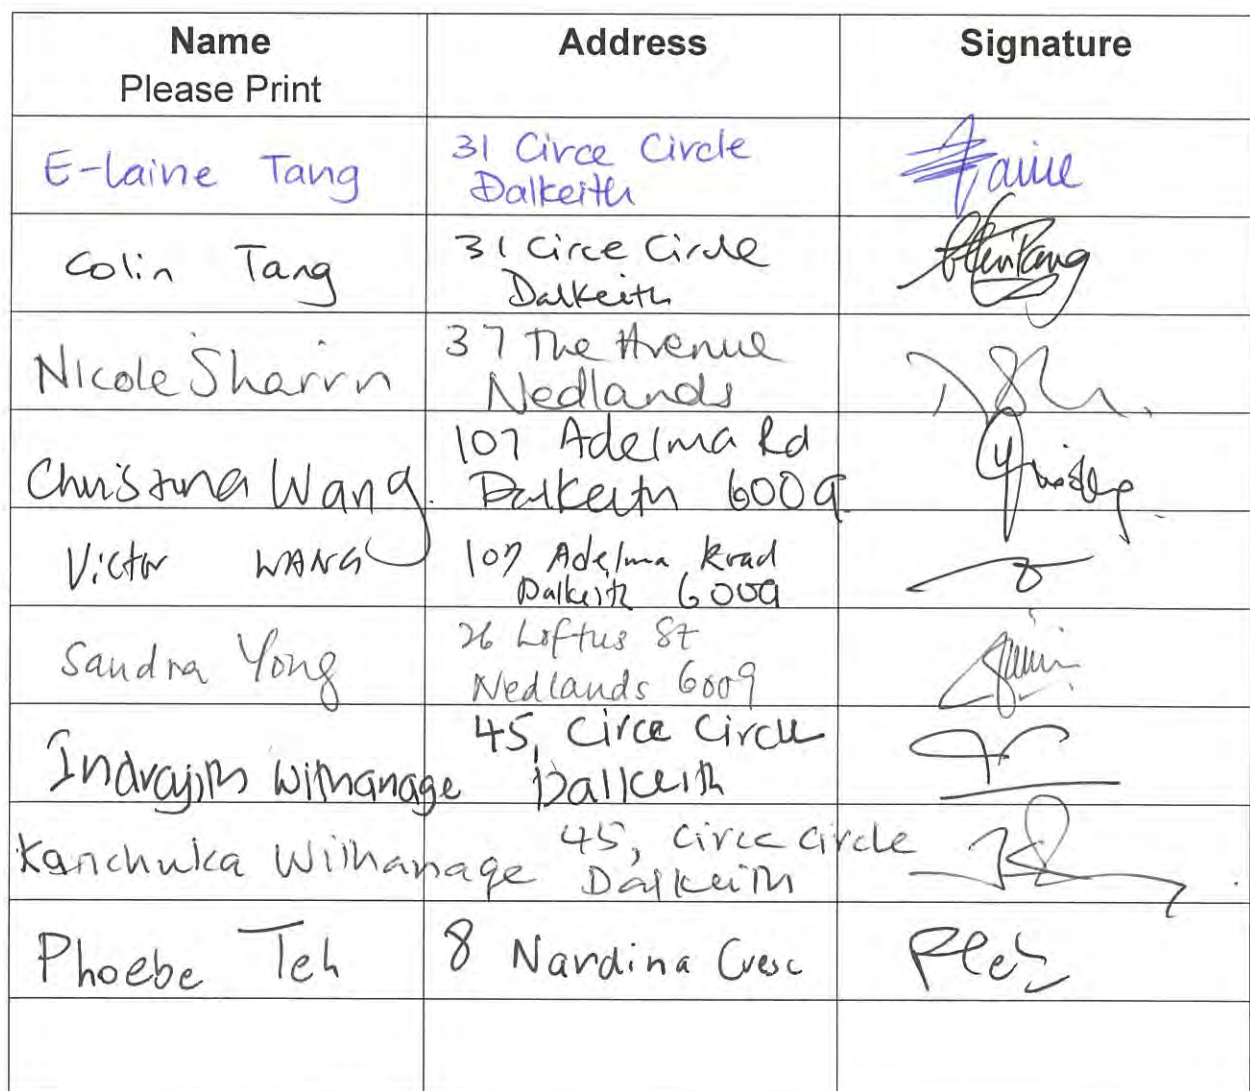 Name Address Signature
Please Print
E-laine Tang 31 Circe Circle
Dalkeith
Colin Tang 31 Circe Circle
Dalkeith
Nicole 37 The Avenue
Nedlands
Christina Wang. 107 Adelma Rd
Dalkeith 6009
Victor WANG 107 Adelma Road
Dalkeith 6009
Sandra Yong 26 Loftus St
Nedlands 6009
Indrajith Withanage 45, Circe Circle
Dalkeith
Kanchuka Withanage 45, Circe Circle
Dalkeith
Phoebe Teh 8 Nardina Cresc